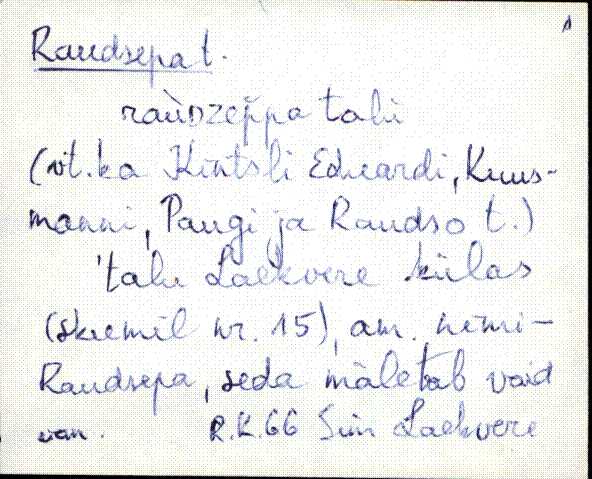 Raudsepa t.
raùDzep̆pa talù
(vt. ka Kintsli Eduardi, Kuus-
manni, Paugi ja Raudso t.)
'talu Laekvere külas
(skeemil nr. 15), am. nimi –
Raudsepa, seda mäletab vaid
van. R.K.66 Sim Laekvere